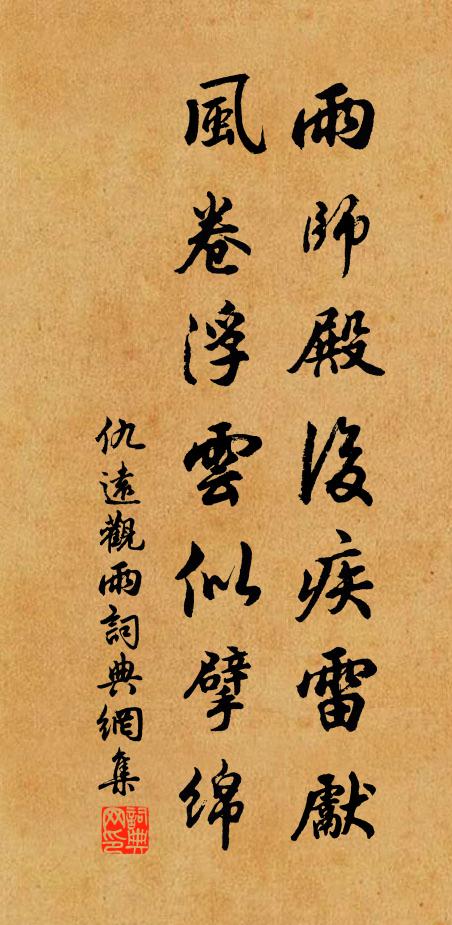 雨師殿後疾雷獻
風卷浮雲似擘綿
仇遠觀雨詞典網集
詞典网印